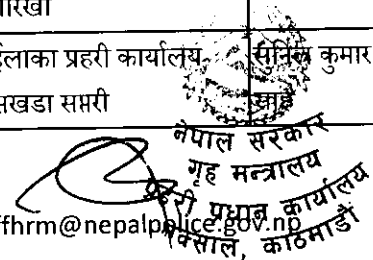 ईलाका प्रहरी कार्यालय
सखडा सप्तरी
सुनिल कुमार
नेपाल सरकार
गृह मन्त्रालय
प्रहरी प्रधान कार्यालय
नक्साल, काठमाडौं
ffhrm@nepalpolice.gov.np